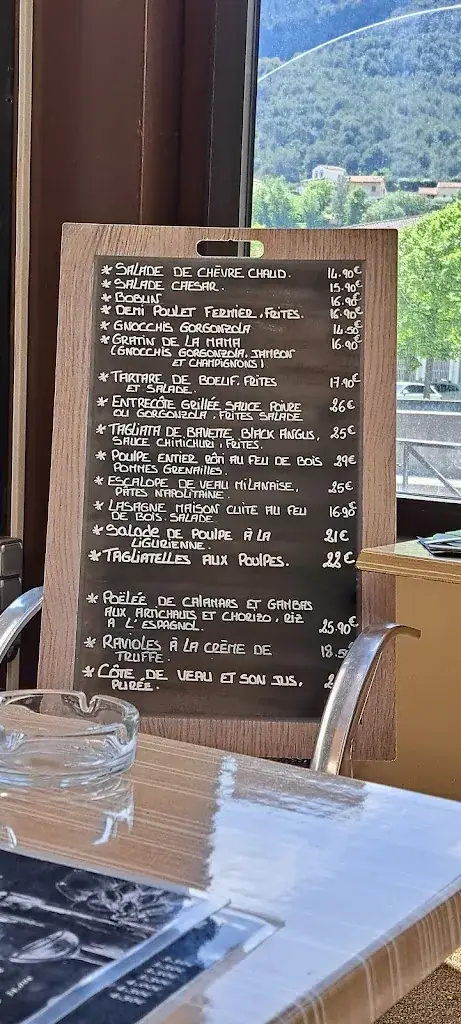 * SALADE DE CHÈVRE CHAUD. 14.90€
* SALADE CAESAR. 15.90€
* BOBUN 16.90€
* DEMI POULET FERMIER, FRITES. 16.90€
* GNOCCHIS GORGONZOLA 14.50€
* GRATIN DE LA MAMA 16.90€
(GNOCCHIS GORGONZOLA, JAMBON
ET CHAMPIGNONS)
* TARTARE DE BOEUF, FRITES 17.90€
ET SALADE.
* ENTRECÔTE GRILLÉE SAUCE POIVRE 26€
OU GORGONZOLA, FRITES SALADE
* TAGLIATA DE BAVETTE BLACK ANGUS, 25€
SAUCE CHIMICHURI, FRITES.
* POULPE ENTIER RÔTI AU FEU DE BOIS 29€
POMMES GRENAILLES.
* ESCALOPE DE VEAU MILANAISE, 25€
PÂTES NAPOLITAINE.
* LASAGNE MAISON CUITE AU FEU 16.90
DE BOIS. SALADE
* SALADE DE POULPE À LA 21€
LIGURIENNE.
* TAGLIATELLES AUX POULPES. 22€
* POËLÉE DE CALAMARS ET GAMBAS
AUX ARTICHAUTS ET CHORIZO, RIZ
A L'ESPAGNOL. 25.90€
* RAVIOLES À LA CRÈME DE 18.50
TRUFFE.
* CÔTE DE VEAU ET SON JUS, 2
PURÉE.